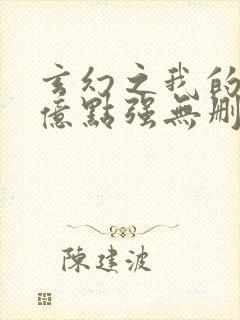 玄幻之我的
億點強無删
陳建波